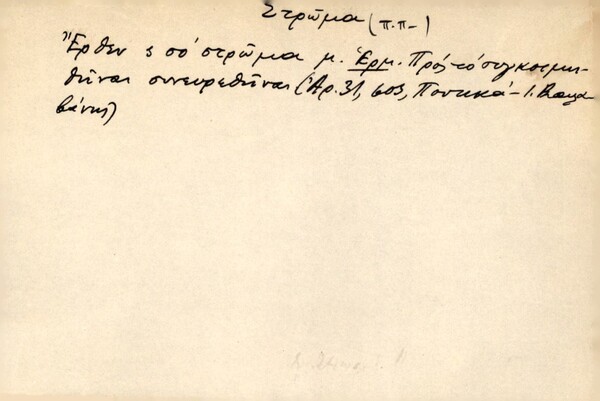 Στρῶμα (π.π-)
Ἔρθεν ς σό στρῶμα μ. Ἑρμ. Πρός τό συγκοιμη-
θῆναι συνευρεθῆναι (Ἀρ. 31, 603, Ποντικά - Ι. Βαλα
βάνης)